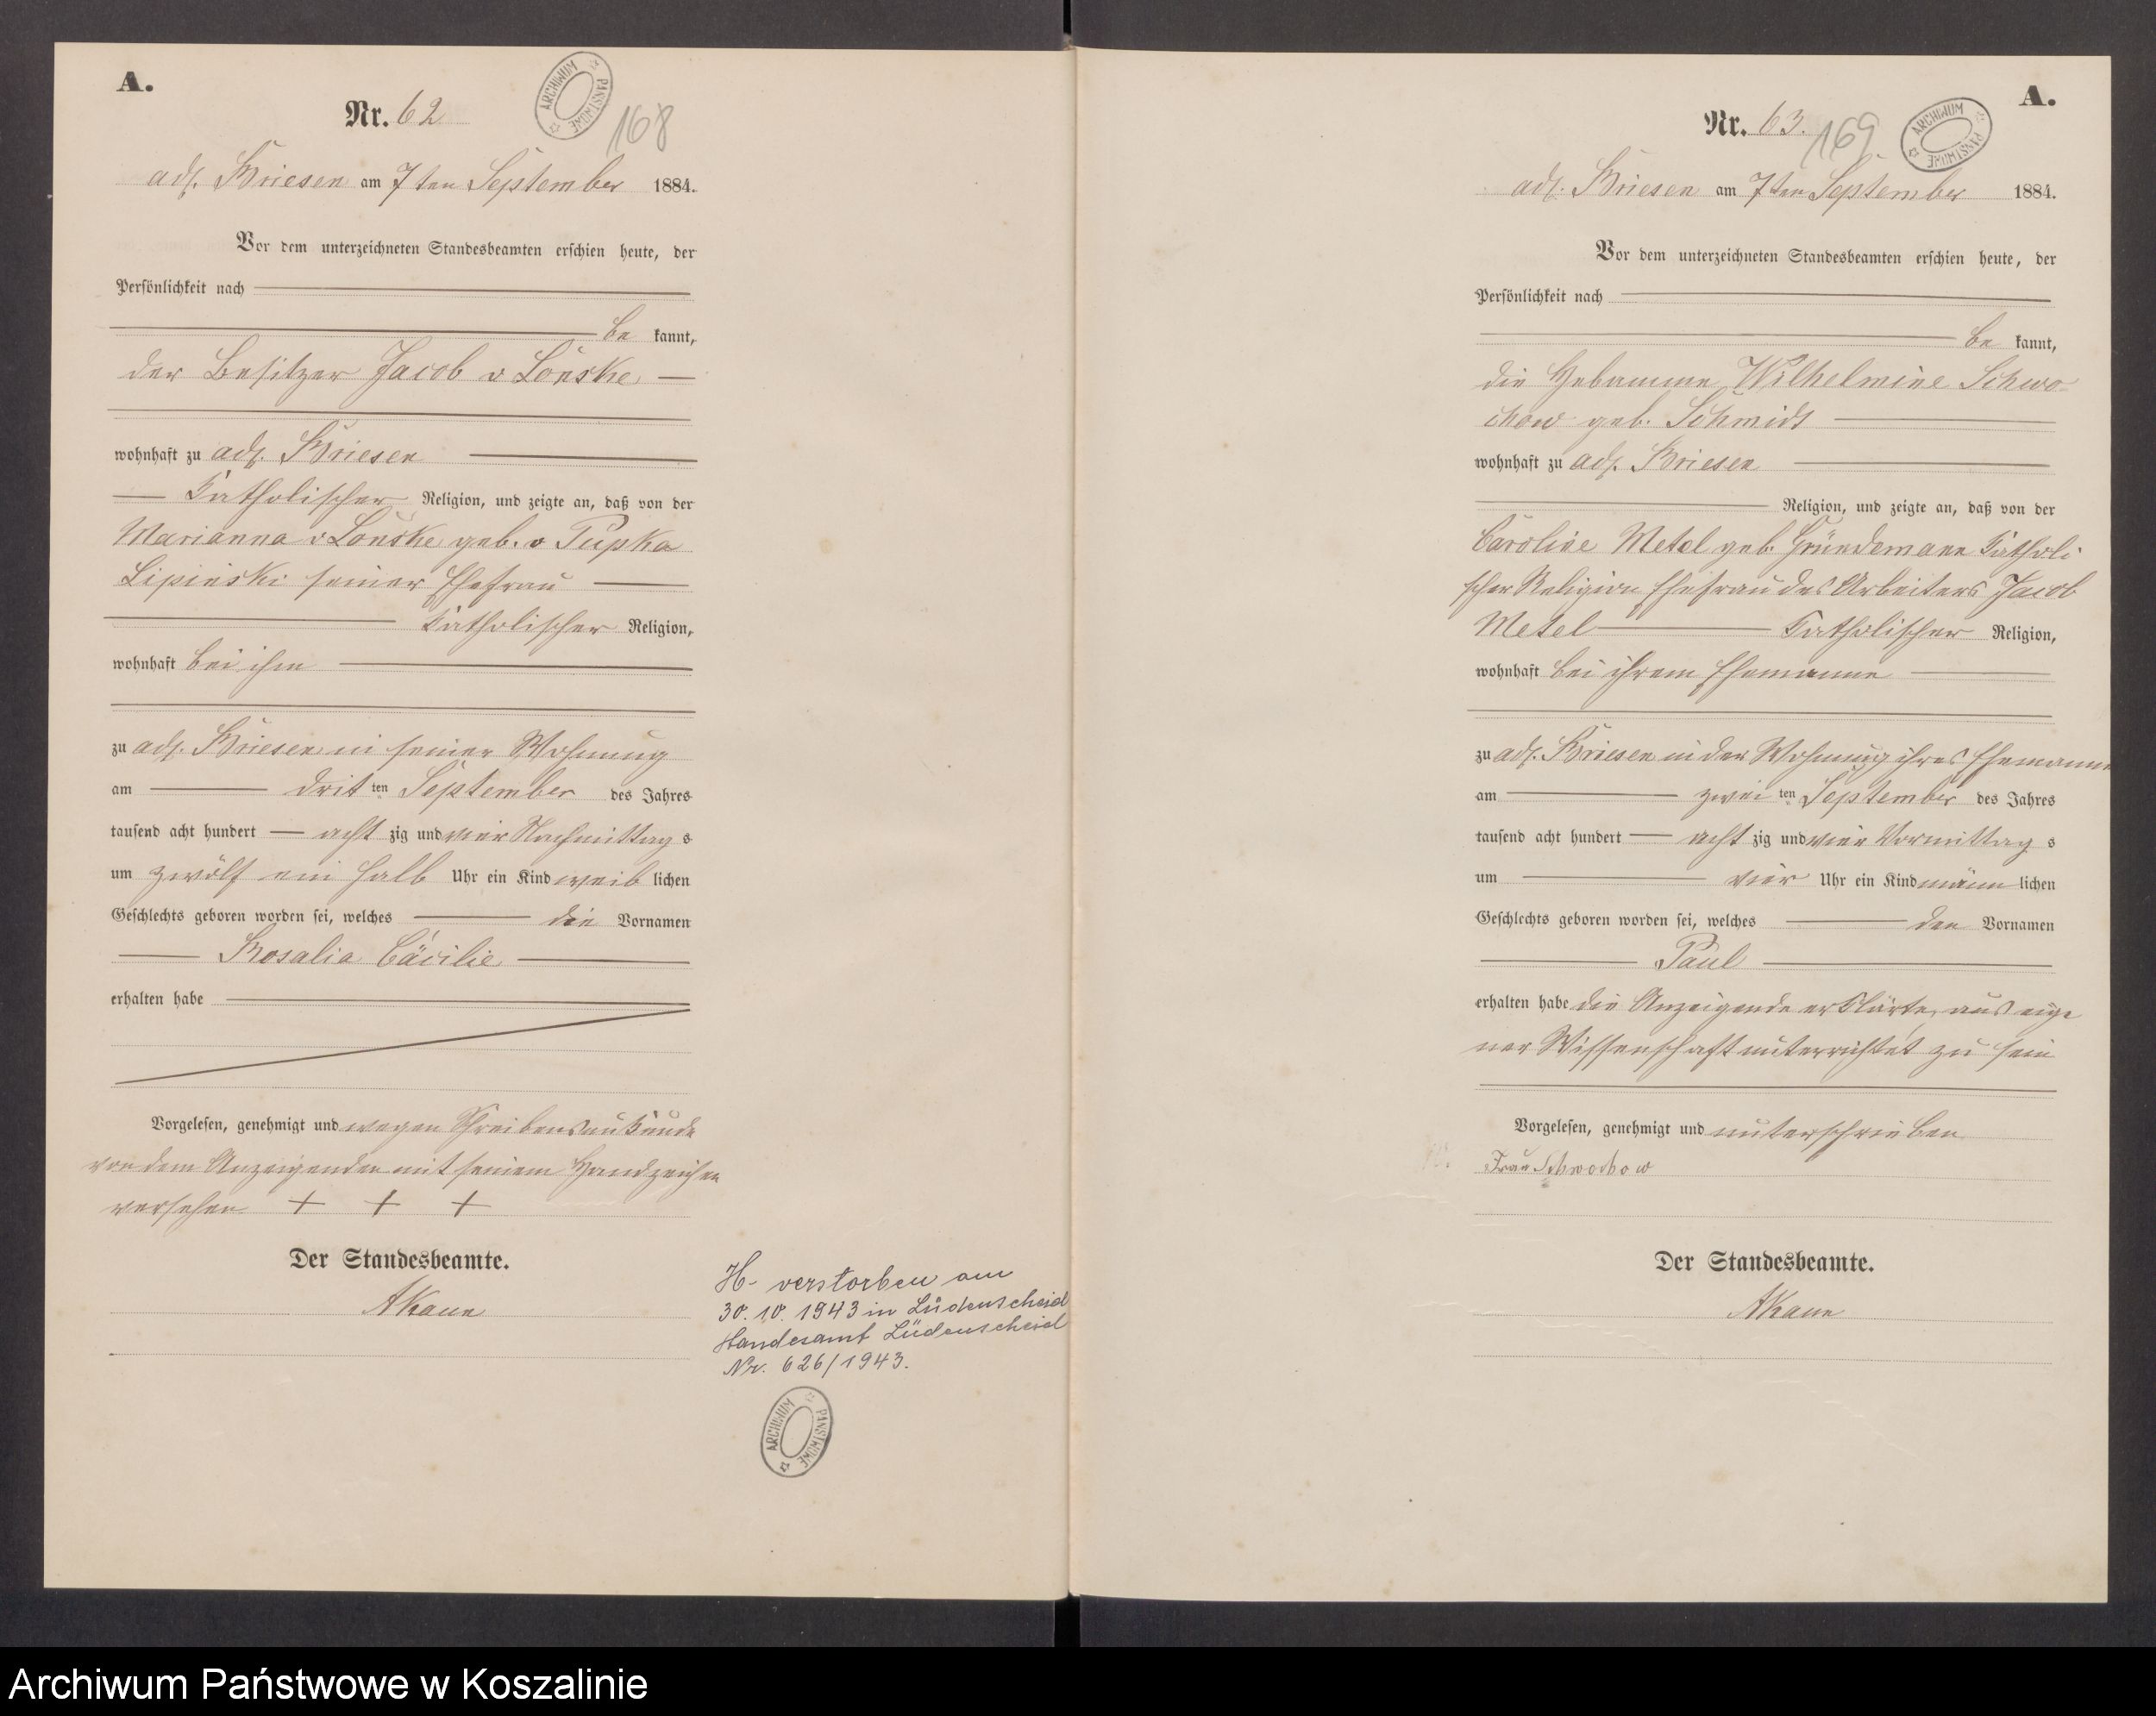 A.
Nr. 62
ARCHIWUM PAŃSTWOWE
168
adl. Briesen am 7ten September 1884.
Vor dem unterzeichneten Standesbeamten erschien heute, der
Persönlichkeit nach
be kannt,
der Besitzer Jacob v Lonske
wohnhaft zu adl. Briesen
Katholischer Religion, und zeigte an, daß von der
Marianna v Lonske geb. v Pupka
Lipinski seiner Ehefrau
Katholischer Religion,
wohnhaft bei ihm
zu adl. Briesen in seiner Wohnung
am dritten September des Jahres
tausend acht hundert achtzig und vier Nachmittags
um zwölf ein halb Uhr ein Kind weiblichen
Geschlechts geboren worden sei, welches die Vornamen
Rosalia Cäcilie
erhalten habe
Vorgelesen, genehmigt und wegen Schreibensunkunde
von dem Anzeigenden mit seinem Handzeichen
versehen + + +
Der Standesbeamte.
AKaun
H- verstorben am
30. 10. 1943 in Lüdenscheid
Standesamt Lüdenscheid
Nr. 626/1943.
ARCHIWUM PAŃSTWOWE
A.
Nr. 63.
169
ARCHIWUM PAŃSTWOWE
adl. Briesen am 7ten September 1884.
Vor dem unterzeichneten Standesbeamten erschien heute, der
Persönlichkeit nach
be kannt,
die Hebamme Wilhelmine Schwo-
chow geb. Schmidt
wohnhaft zu adl. Briesen
Religion, und zeigte an, daß von der
Caroline Metel geb. Gründemann Katholi
scher Religion Ehefrau des Arbeiters Jacob
Metel Katholischer Religion,
wohnhaft bei ihrem Ehemanne
zu adl. Briesen in der Wohnung ihres Ehemanns
am zweiten September des Jahres
tausend acht hundert achtzig und vier Vormittags
um vier Uhr ein Kind männlichen
Geschlechts geboren worden sei, welches den Vornamen
Paul
erhalten habe die Anzeigende erklärte, aus eige
ner Wissenschaft unterrichtet zu sein
Vorgelesen, genehmigt und unterschrieben
Frau Schwochow
Der Standesbeamte.
AKaun
Archiwum Państwowe w Koszalinie